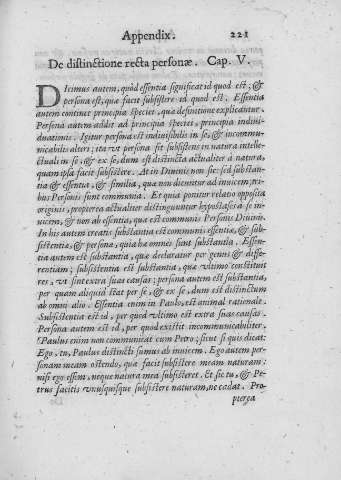 Appendix. 221
De distinctione recta personæ. Cap. V.
DIcimus autem, quòd essentia significat id quod est; &
persona est, quæ facit subsistere id quod est; Essentia
autem continet principia speciei, quæ definitione explicantur.
Persona autem addit ad principia speciei, principia indiui-
duationis. Igitur persona est indiuisibilis in se, & incommu-
nicabilis alteri; ita vt persona sit subsistens in natura intelle-
ctuali in se, & ex se, dum est distincta actualiter à natura,
quam ipsa facit subsistere. At in Diuinis non sic: sed substan-
tia & essentia, & similia, quæ non dicuntur ad inuicem, tri-
bus Personis sunt communia. Et quia ponitur relatio opposita
originis, propterea actualiter distinguuntur hypostases à se in-
uicem, & non ab essentia, quæ est communis Personis Diuinis.
In his autem creatis substantia est communis essentiæ, & sub-
sistentiæ, & persona, quia hæ omnes sunt substantia. Essen-
tia autem est substantia, quæ declaratur per genus & diffe-
rentiam; subsistentia est substantia, quæ vltimo constituit
res, vt sint extra suas causas: persona autem est substantia,
per quam aliquid stat per se, & ex se, dum est distinctum
ab omni alio. Essentia enim in Paulo, est animal rationale.
Subsistentia est id, per quod vltimo est extra suas causas.
Persona autem est id, per quod existit incommunicabiliter.
Paulus enim non communicat cum Petro; sicut si quis dicat:
Ego, tu, Paulus distincti sumus ab inuicem. Ego autem per-
sonam meam ostendo, quæ facit subsistere meam naturam:
nisi ergo essem, neque natura mea subsisteret. Et sic tu, & Pe-
trus facitis vnusquisque subsistere naturam, ne cadat. Pro-
pterea